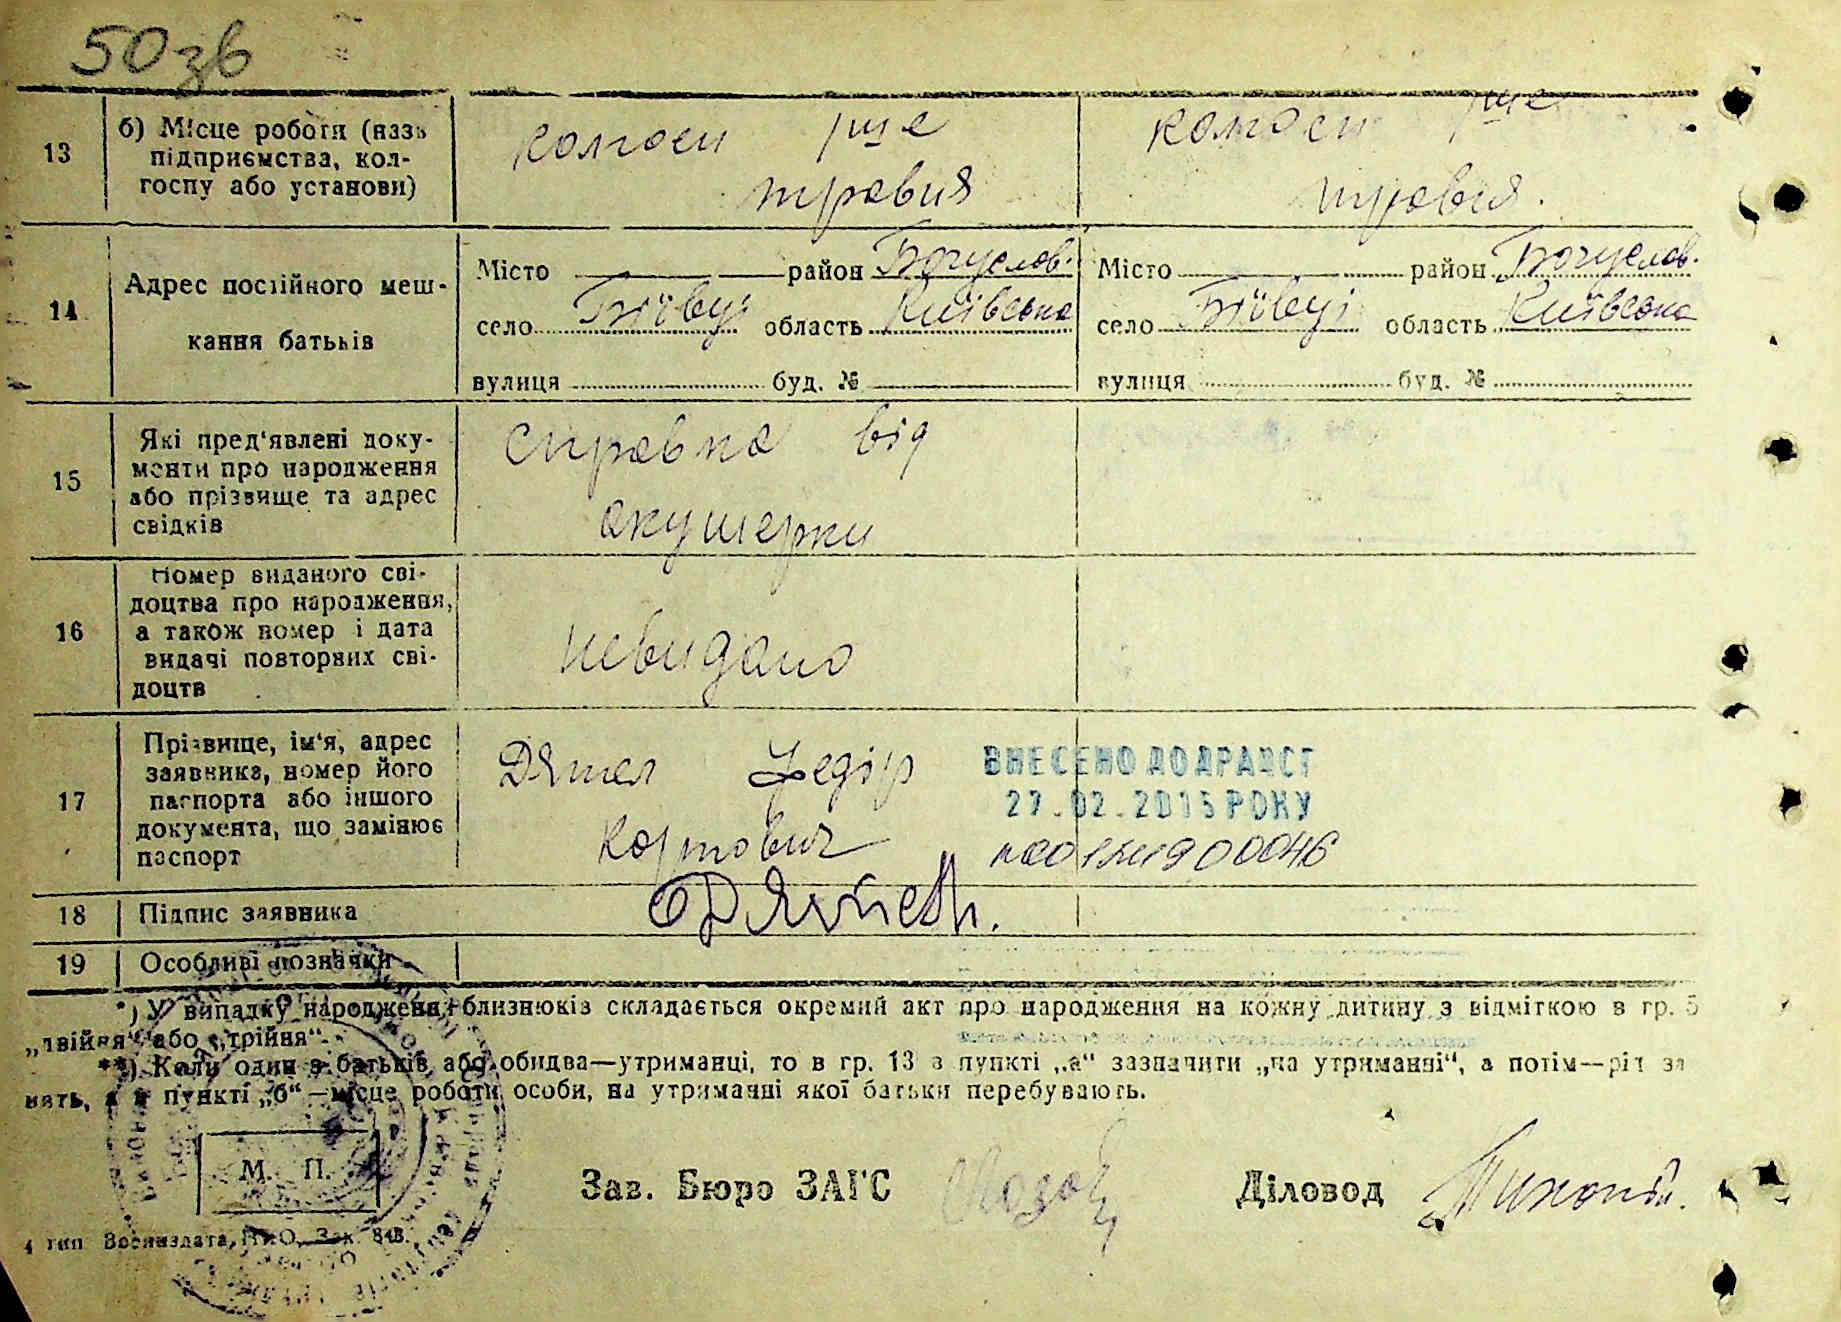 50зв
13
б) Місце роботи (назв
підприємства, кол-
госпу або установи)
колгосп 1ше
травня
колгосп 1ше
травня.
14
Адрес постійного меш-
кання батьків
Місто район Богуслов.
село Биївці область Київська
вулиця буд. №
Місто район Богуслов.
село Биївці область Київська
вулиця буд. №
15
Які пред'явлені доку-
менти про народження
або прізвище та адрес
свідків
справка від
акушерки
16
Номер виданого сві-
доцтва про народження,
а також номер і дата
видачі повторних сві-
доцтв
невидано
17
Прізвище, ім'я, адрес
заявника, номер його
паспорта або іншого
документа, що замінює
паспорт
Дятел Федір
Кортович
ВНЕСЕНО ДО ДРАЦСГ
27.02.2015 РОКУ
18
Підпис заявника
19
Особливі позначки
*) У випадку народження близнюків складається окремий акт про народження на кожну дитину з відміткою в гр. 5
„двійня“ або „трійня“.
**) Коли один з батьків або обидва—утриманці, то в гр. 13 в пункті „а“ зазначити „на утриманні“, а потім—рід за
нять, а в пункті „б“—місце роботи особи, на утриманні якої батьки перебувають.
М. П.
Зав. Бюро ЗАГС
Діловод
4 тип Воениздата, Зак. 848.